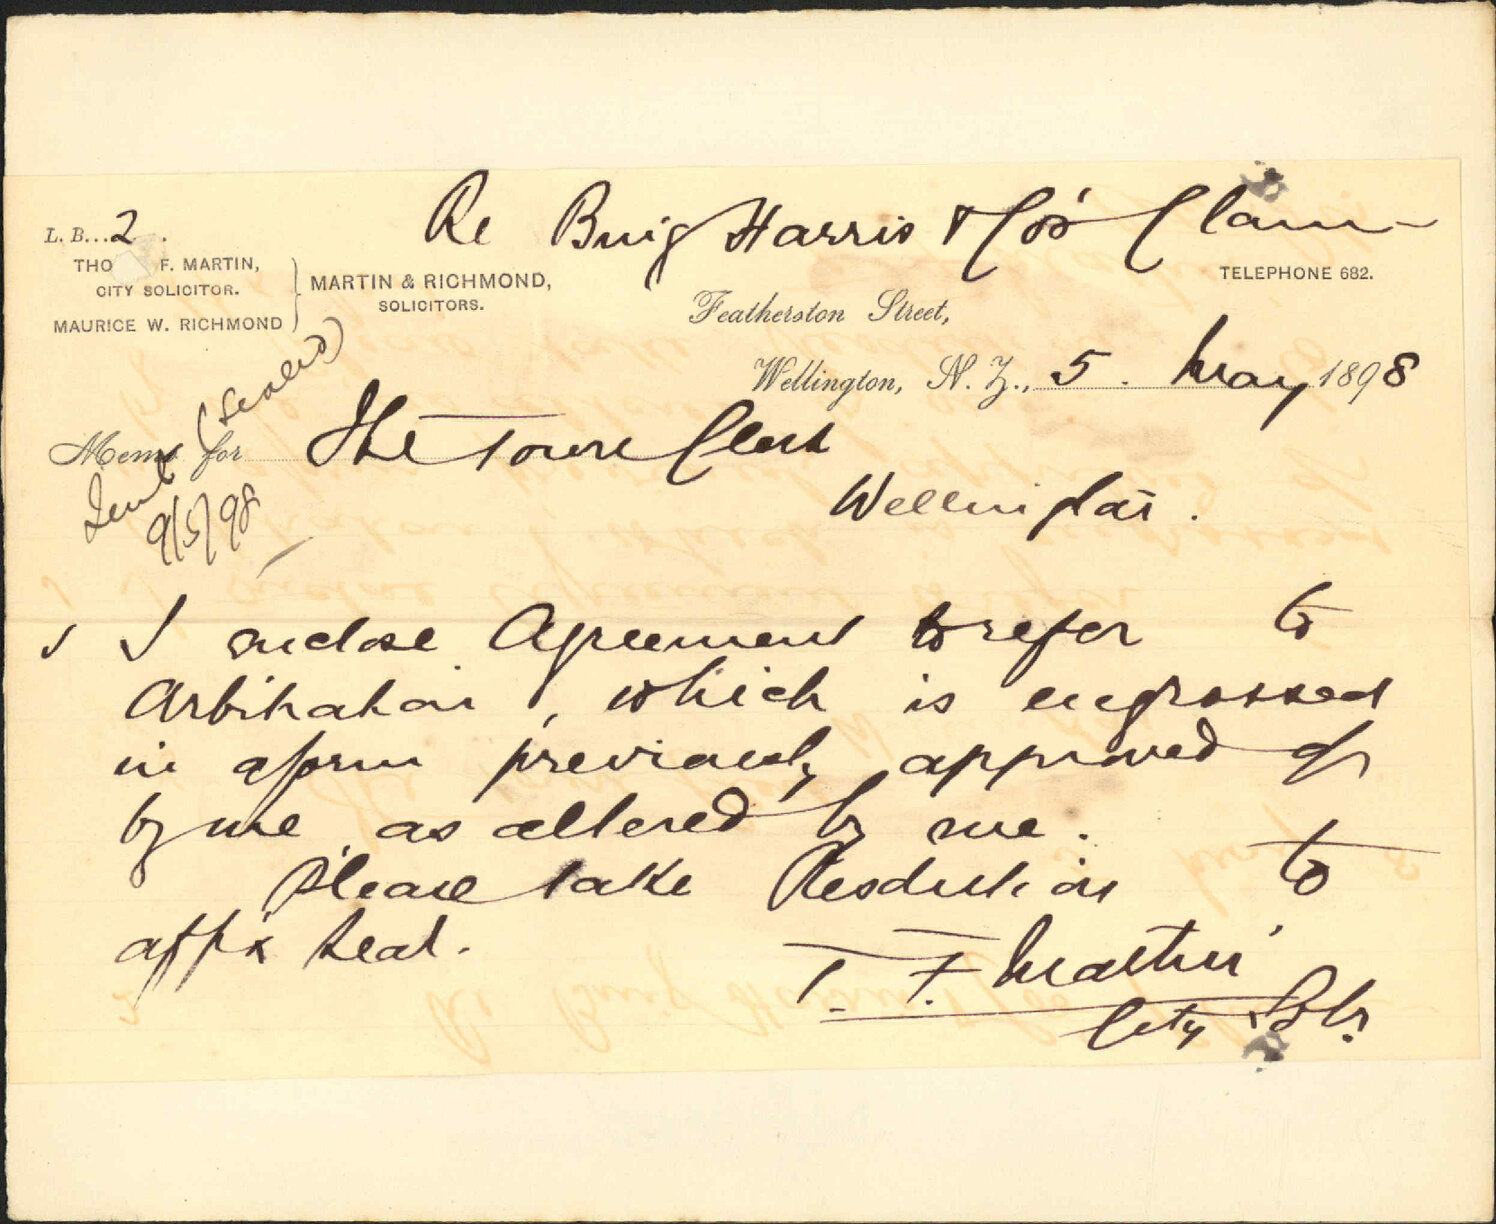 Re Buig Harris & Co's Claim
L. B... 2 .
THO F. MARTIN,
CITY SOLICITOR.
MAURICE W. RICHMOND
MARTIN & RICHMOND,
SOLICITORS.
TELEPHONE 682.
Featherston Street,
Wellington, N. Z., 5. May 1898
Memo for The Town Clerk
Wellington.
(sealed)
9/5/98
I enclose Agreement to refer to
Arbitration, which is engrossed
in a form previously approved of
by me as altered by me.
Please take Resolution to
affix seal.
T. F. Martin
City Solr.